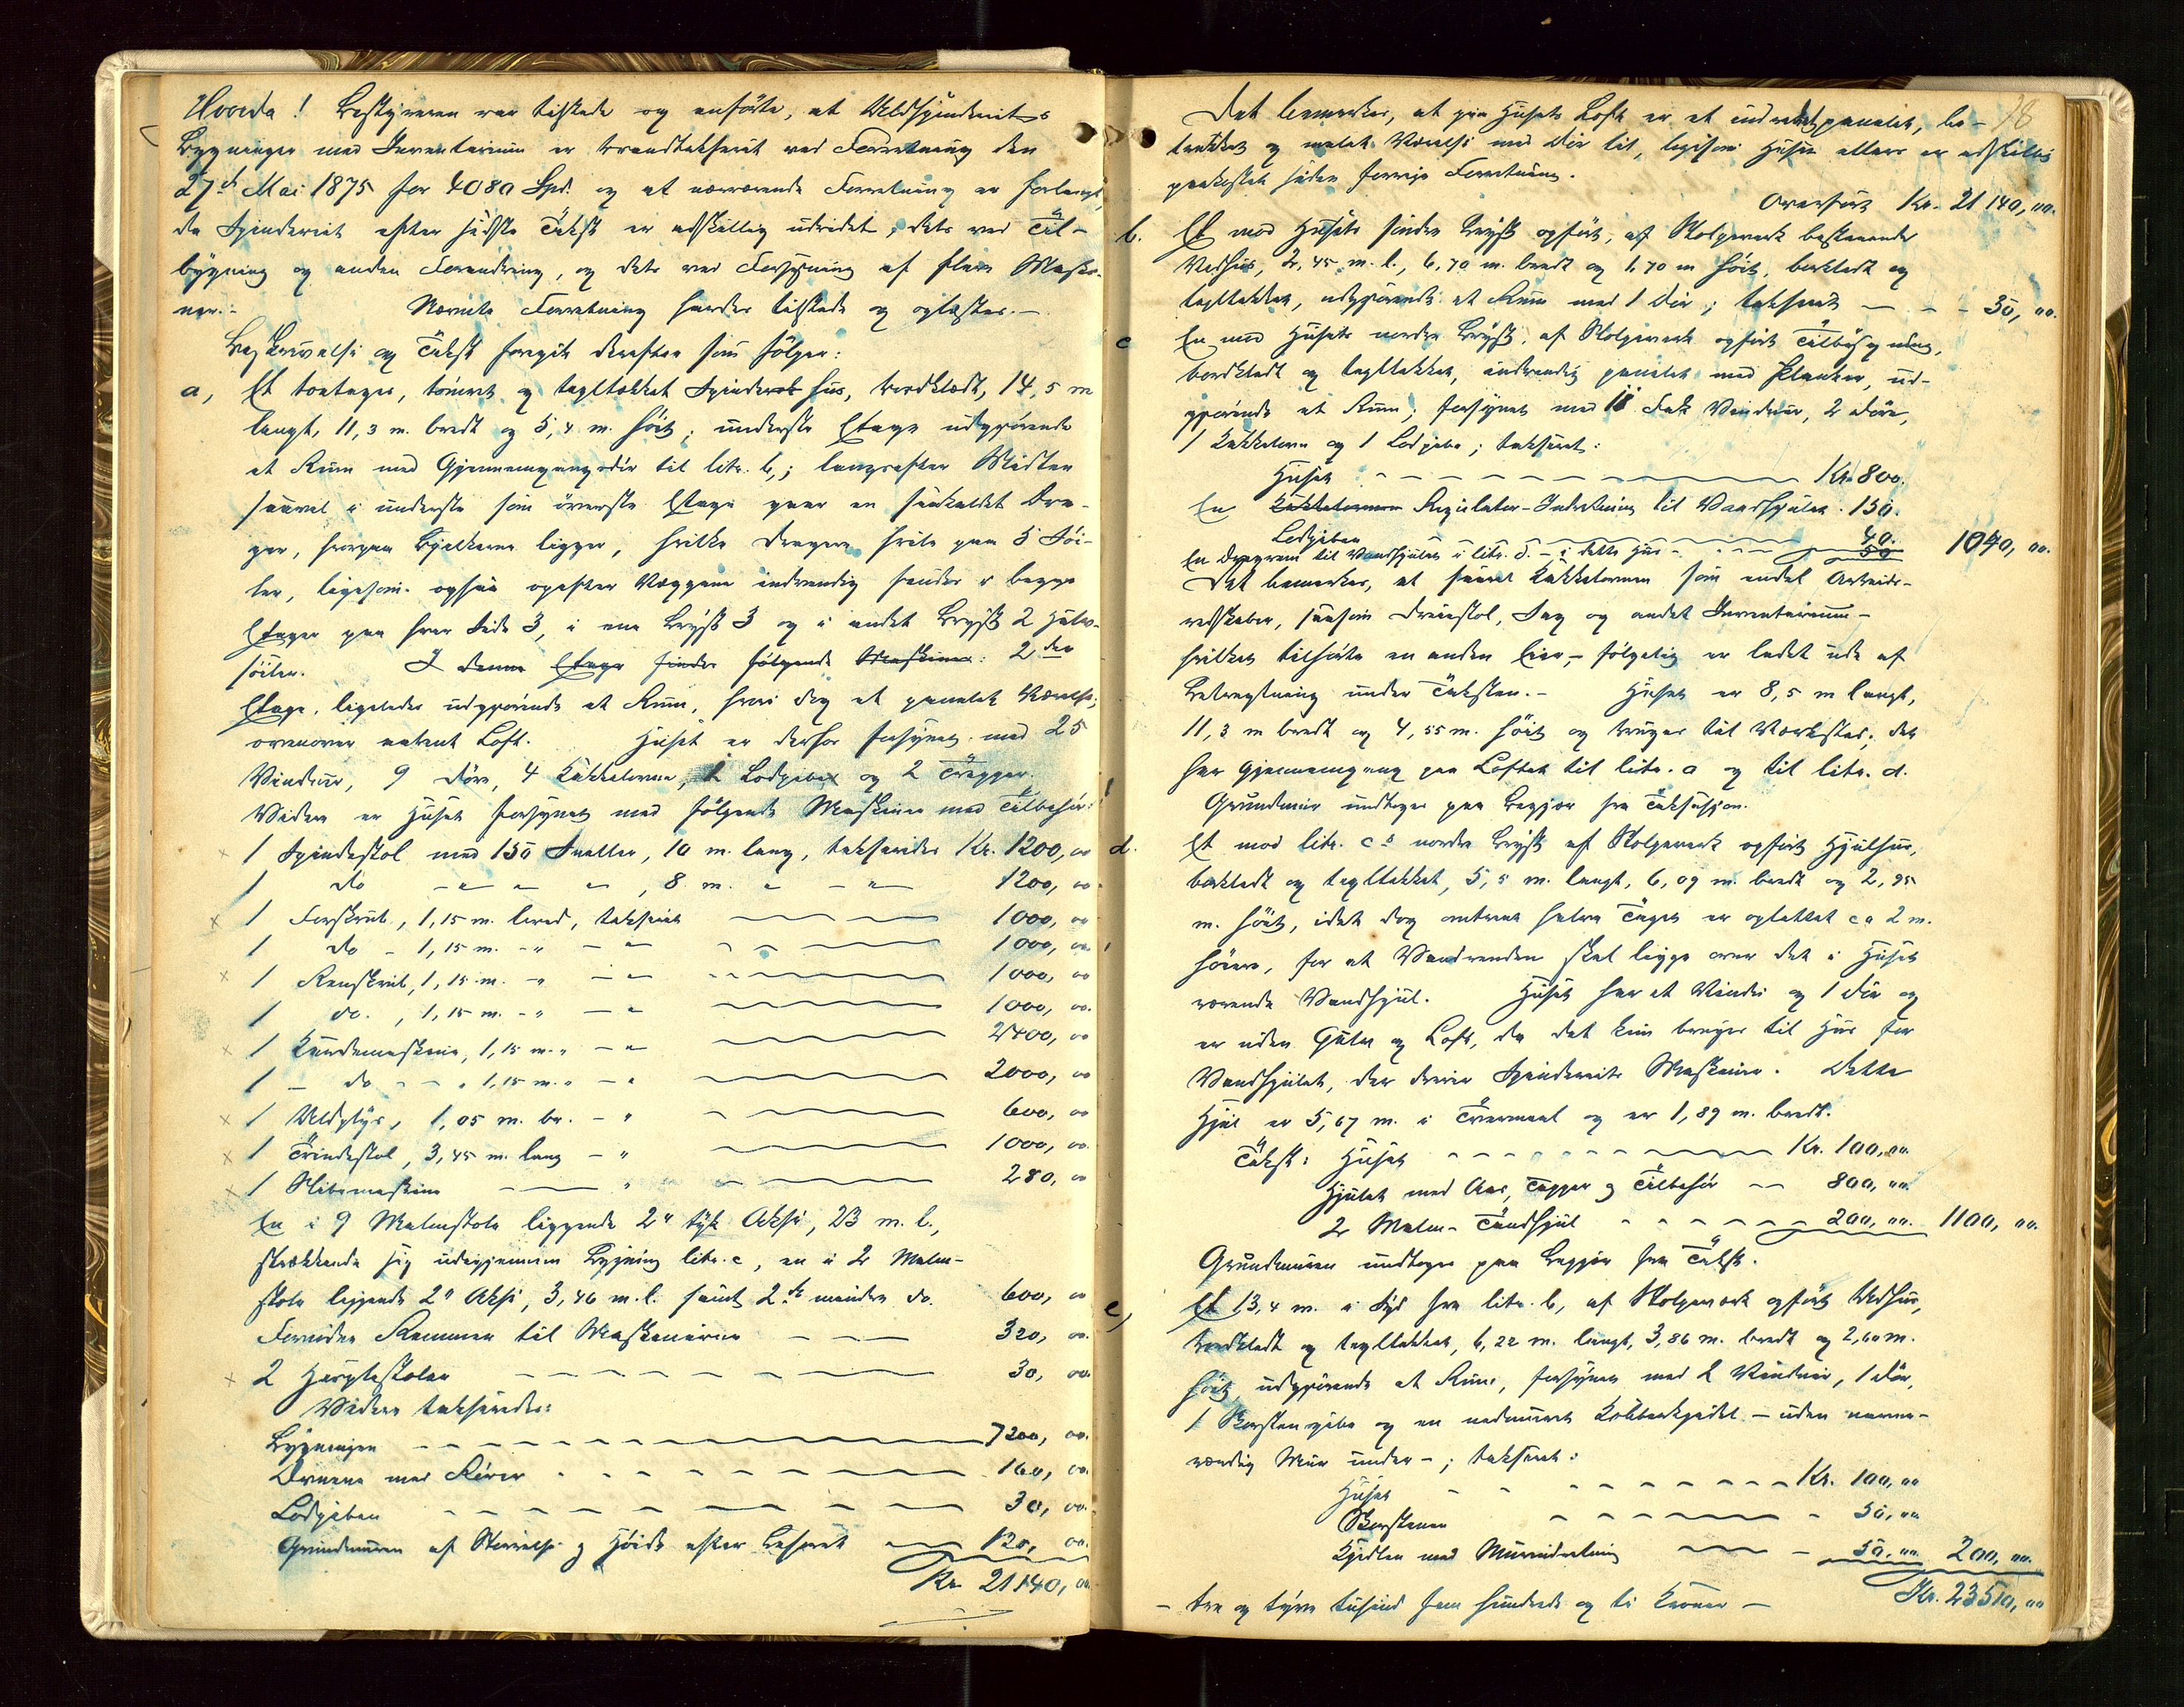 Hvorda! Bestyreren var tilstede og anførte, at Uldspinderiets
Bygninger med Inventarium er brandtakseret ved Forretning den
27de Mai 1875 for 4080 Spd. og at nærværende Forretning er forlangt,
da Spinderiet efter sidste Takst er adskillig udvidet, dels ved Til-
bygning og anden Forandring, og dels ved Forsyning af flere Maski-
ner.- Nævnte Forretning havdes tilstede og oplæstes.-
Beskrivelse og Takst foregik derefter som følger:
a, Et toetages, tømret og tegltækket Spinderihus, bordklædt, 14,5 m
langt, 11,3 m. bredt og 5,4 m. høit; underste Etage udgjørende
et Rum med Gjennemgangsdør til litr. b,; langsefter Midten
saavel i underste som øverste Etage gaar en saakaldet Dra-
ger, hvorpaa Bjelkerne ligger, hvilke Dragere hvile paa 5 Søi-
ler, ligesom ogsaa opefter Væggene indvendig findes i begge
Etager paa hver Side 3, i ene Bryst 3 og i andet Bryst 2 Halv-
søiler. I denne Etage findes følgende Maskiner: 2den
Etage, ligeledes udgjørende et Rum, hvori dog et panelet Værelse;
ovenover aabent Loft. Huset er derfor forsynet med 25
Vinduer, 9 Døre, 4 Kakkelovne, 1 Lodpibe og 2 Trapper.
Videre er Huset forsynet med følgende Maskiner med Tilbehør:
1 Spindestol med 150 Sneller, 10 m. lang, takseredes Kr. 1200, 00
1 do - " - " - " , 8 m. " - " 1200, 00
1 Forskrub., 1,15 m. bred, takseret 1000, 00
1 do - 1,15 m. - " - " 1000, 00
1 Renskrub, 1,15 m. - " - " 1000, 00
1 do. , 1,15 m. - " - " 1000, 00
1 Kardemaskine, 1,15 m. " - " 2400, 00
1 - do - - " 1,15 m. " - " 2000, 00
1 Uldplys, 1,05 m. br. - " 600, 00
1 Tvindestol, 3,45 m. lang - " 1000, 00
1 Slibemaskine " 280, 00
En i 9 Malmstole liggende 2" tyk Akse, 23 m. l.,
strækkende sig udigjennem Bygning litr. c, en i 2 Malm-
stole liggende 2" Akse, 3,46 m. l. samt 2de mindre do. 600, 00
Fornøden Remmer til Maskineriet 320, 00
2 Haspestoler 30, 00
Videre takseredes:
Bygningen 7200, 00.
Ovnene med Rører 160, 00.
Lodpiben 30, 00.
Grundmuren af Størrelse og Høide efter Behovet 120, 00.
Kr. 21140, 00
28
Det bemærkes, at paa Husets Loft er et indredet panelet, be-
trækket og malet Værelse med Dør til, ligesom Huset ellers er adskillig
paakostet siden forrige Forretning.
Overført Kr. 21140, 00.
b. Et mod Husets søndre Bryst opført, af Stolpeværk bestaaende
Vedhus, 2,45 m. l., 6,70 m. bredt og 1,70 m høit, bordklædt og
tegltækket, udgjørende et Rum med 1 Dør; takseret - - - 30, 00.
c En mod Husets nordre Bryst, af Stolpeværk opført Tilbygning,
bordklædt og tegltækket, indvendig panelet med Planker, ud-
gjørende et Rum; forsynet med 11 Fak Vinduer, 2 Døre,
1 Kakkelovn og 1 Lodpibe; takseret:
Huset Kr. 800.
En Kakkelovnen Regulator-Indretning til Vandhjulet. 150.
Lodpiben 40.
En Drejeremi til Vandhjulet i litr. d. - i dette Hus - 50 1040, 00.
Det bemærkes, at saavel Kakkelovnen som endel Arbeids-
redskaber, saasom Dreiestol, Sag og andet Inventarium -
hvilket tilhører en anden Eier,- følgelig er ladet ude af
Betragtning under Taksten.- Huset er 8,5 m langt,
11,3 m bredt og 4,55 m. høit og bruges til Værksted; det
har Gjennemgang paa Loftet til litr. a og til litr. d.
Grundmur undtages paa Begjær fra Taksasjon.
d. Et mod litr. cs nordre Bryst af Stolpeværk opført Hjulhus,
bordklædt og tegltækket, 5,5 m. langt, 6,09 m. bredt og 2,95
m. høit, idet dog omtrent halve Taget er opløftet ca 2 m.
høiere, for at Vandrenden skal ligge over det i Huset
værende Vandhjul. Huset har et Vindu og 1 Dør og
er uden Gulv og Loft, da det kun bruges til Hus for
Vandhjulet, der driver Spinderiets Maskiner. Dette
Hjul er 5,67 m. i Tvermaal og er 1,89 m. bredt.
Takst: Huset Kr. 100,00
Hjulet med Aas, Tapper og Tilbehør - - 800, 00
2 Malm-Tandhjul 200, 00. 1100, 00.
Grundmuren undtages paa Begjær fra Takst.
e, Et 13,4 m. i Syd fra litr. b, af Stolpeværk opført Vedhus,
bordklædt og tegltækket, 6,22 m. langt, 3,86 m. bredt og 2,60 m.
høit, udgjørende et Rum, forsynet med 2 Vinduer, 1 Dør,
1 Skorstenspibe og en nedmuret Kobberkjedel - uden nævne-
værdig Mur under -; takseret:
Huset Kr. 100,00
Skorstenen - 50,00
Kjedlen med Murindretning - 50,00 200, 00.
- tre og tyve tusind fem hundrede og ti Kroner - Kr. 23510,00